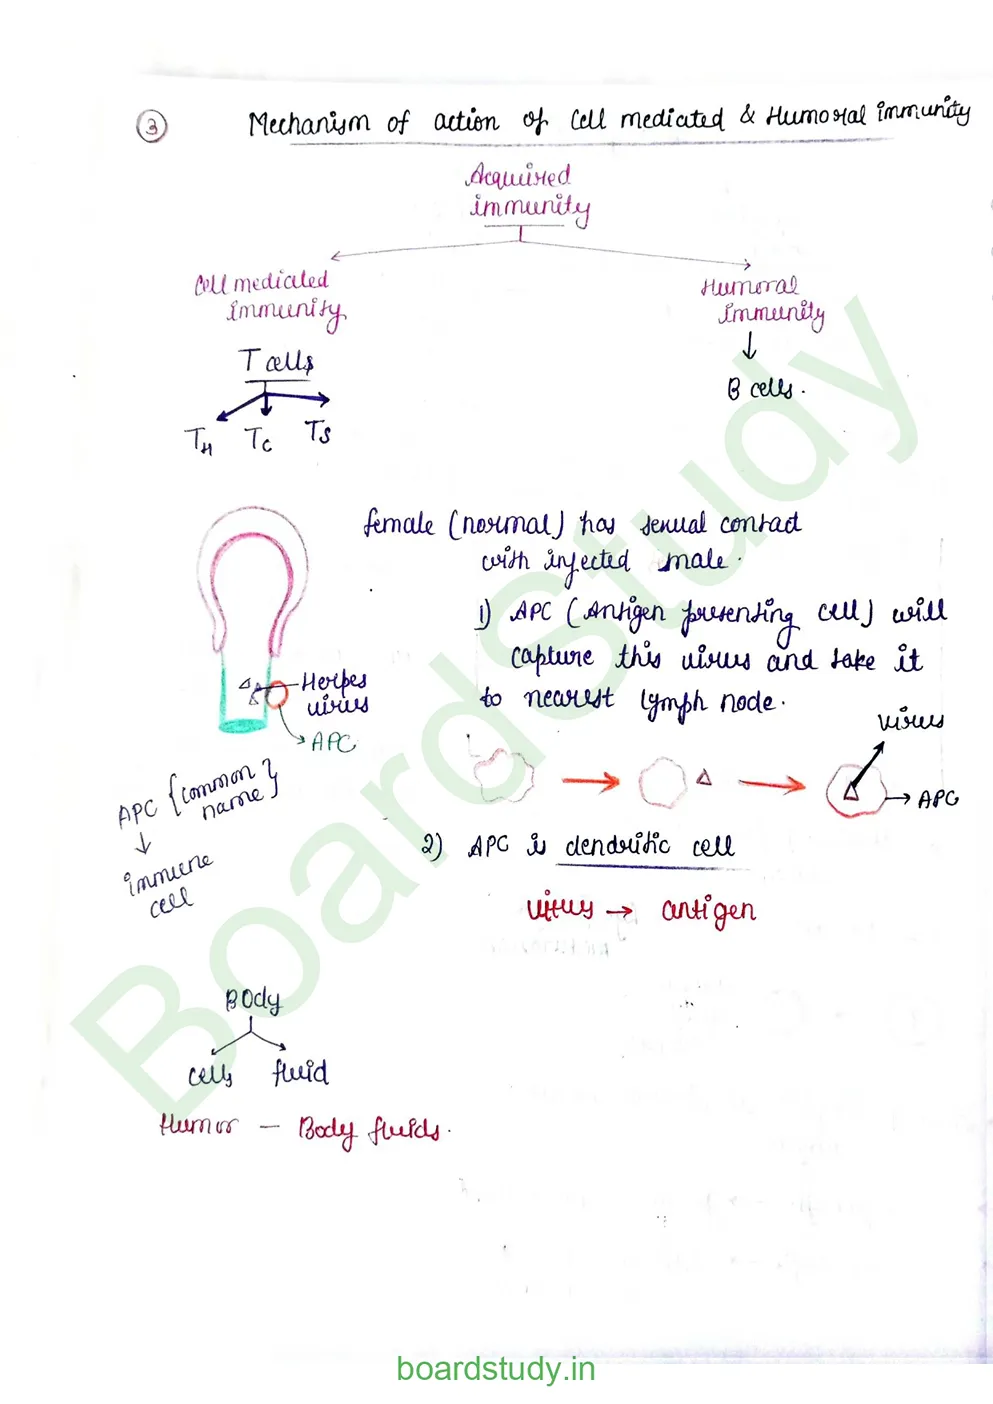 3
Mechanism of action of Cell mediated & Humoral immunity
Acquired
immunity
Cell mediated
immunity
Humoral
immunity
T cells
B cells.
TH Tc Ts
female (normal) has sexual contact
with infected male.
1) APC (Antigen presenting cell) will
capture this virus and take it
to nearest lymph node.
Herpes
virus
APC
virus
APC
APC {common name}
immune
cell
2) APC is dendritic cell
virus → antigen
Body
cells fluid
Humor — Body fluids.
Boardstudy
boardstudy.in